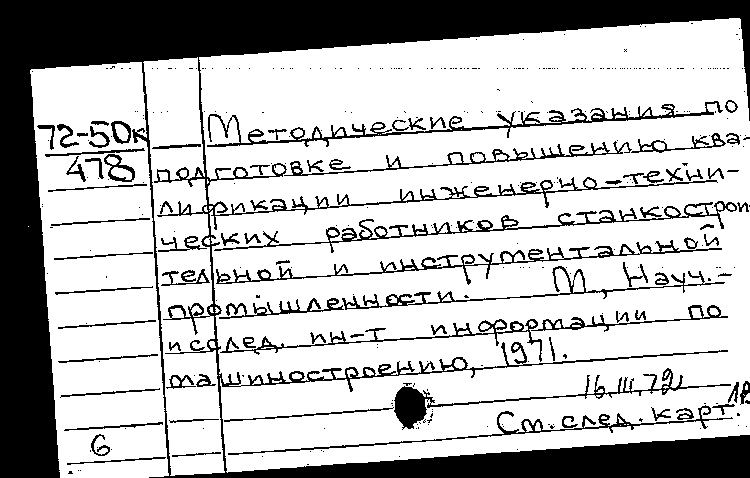 72-50к
478
Методические указания по
подготовке и повышению ква-
лификации инженерно-техни-
ческих работников станкострои-
тельной и инструментальной
промышленности. М., Науч.-
исслед. ин-т информации по
машиностроению, 1971.
16.III.72
См. след. карт.
6